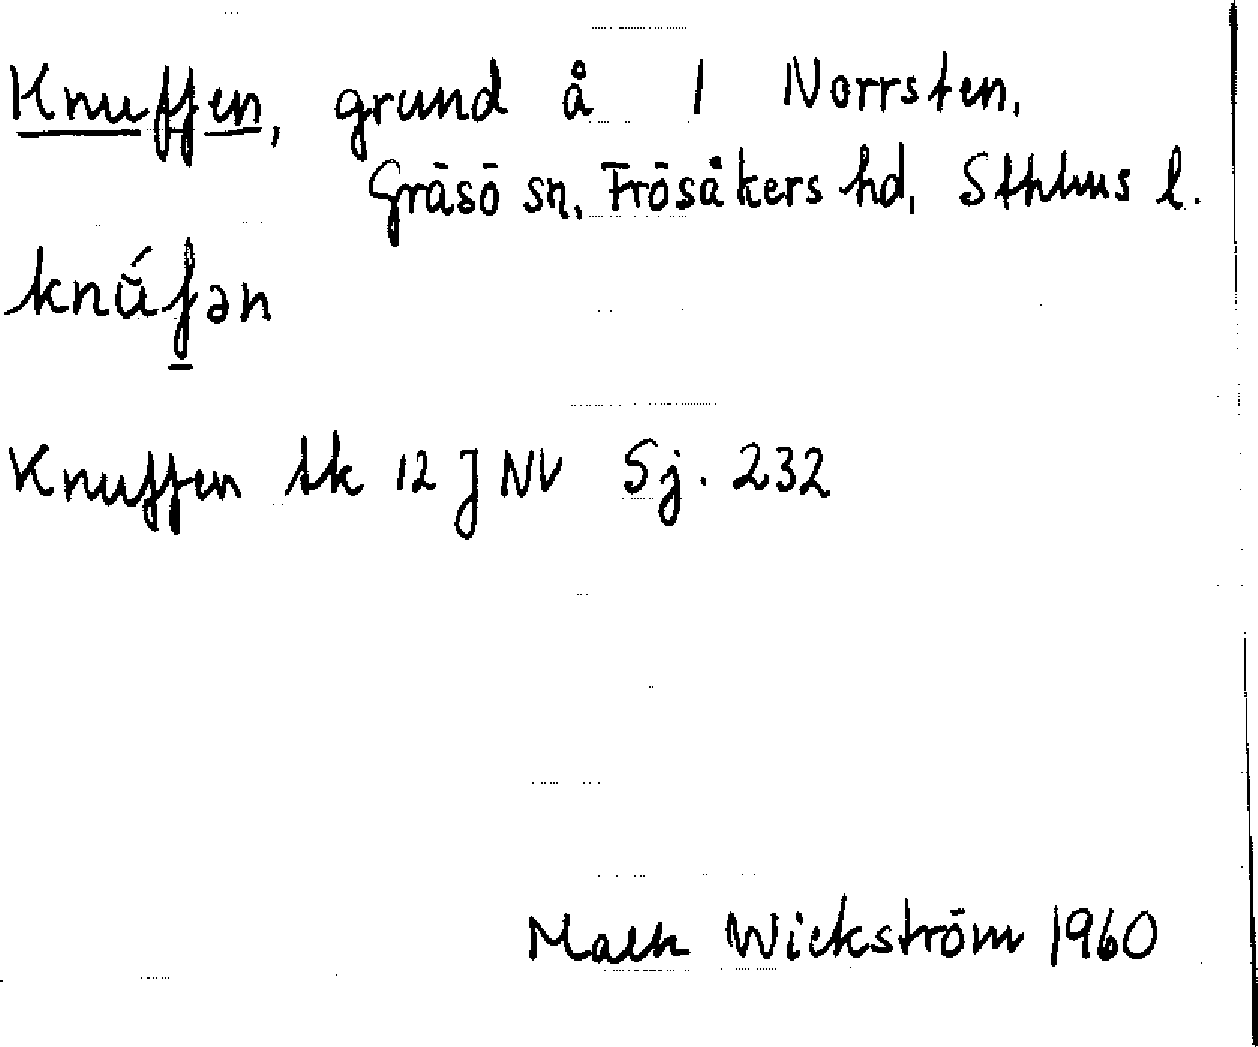 Knuffen, grund å 1 Norrsten,
Gräsö sn, Frösåkers hd, Sthlms l.
knŭ́fən
Knuffen tk 12 J NV Sj. 232
Wickström 1960